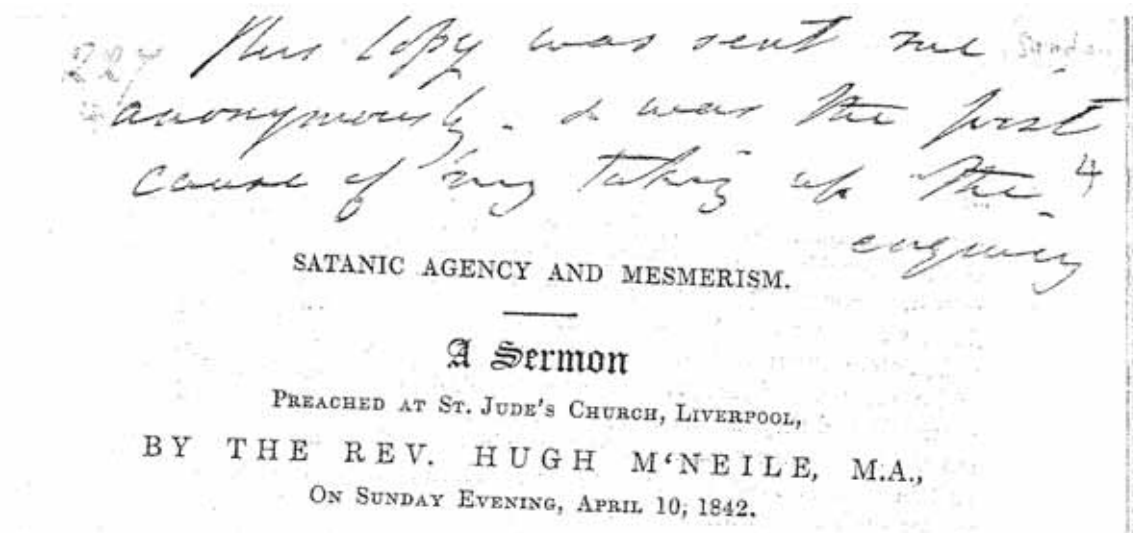 227
This Copy was sent me
anonymously. & was the first
cause of my taking up the 4
enquiry
SATANIC AGENCY AND MESMERISM.
A Sermon
PREACHED AT ST. JUDE'S CHURCH, LIVERPOOL,
BY THE REV. HUGH M‘NEILE, M.A.,
ON SUNDAY EVENING, APRIL 10, 1842.